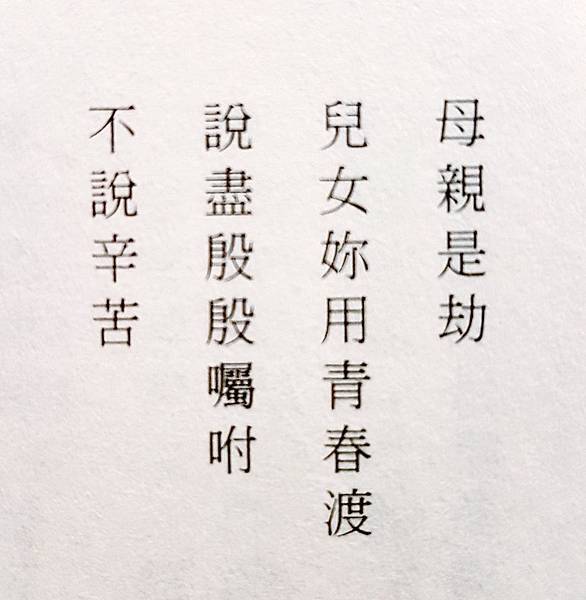 母親是劫
兒女妳用青春渡
說盡殷殷囑咐
不說辛苦